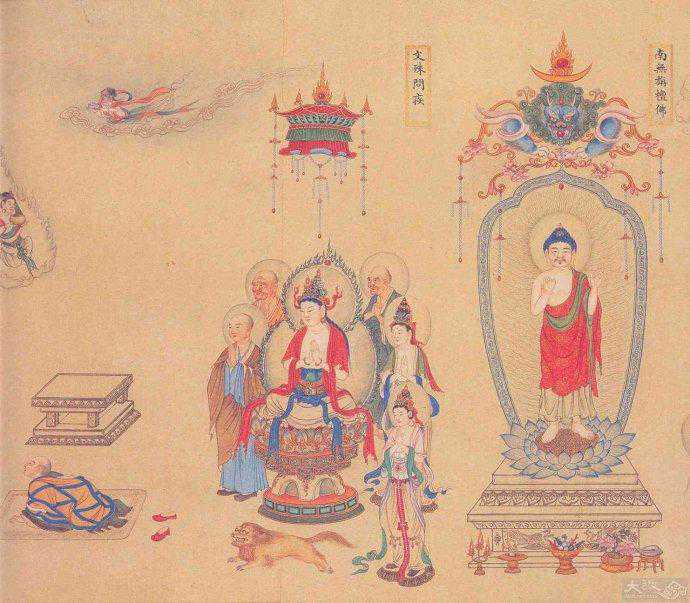 南無栴檀佛
文殊問疾